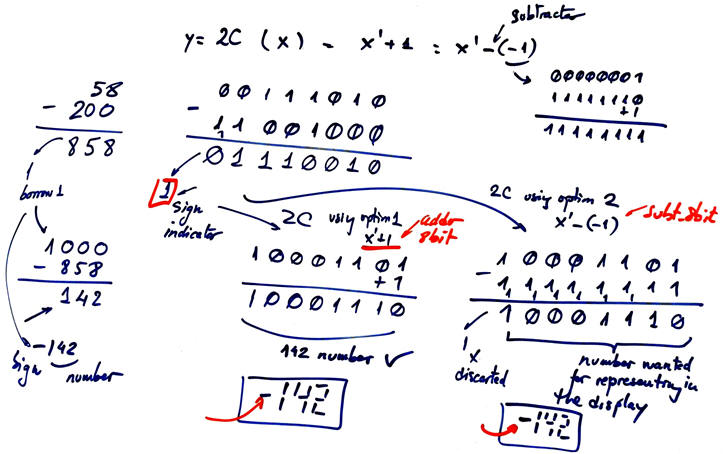 subtractor
y = 2C (x) = x'+1 = x'-(-1)
00000001
11111110
+1
11111111
58
- 200
858
borrow 1
1000
- 858
142
-142
sign number
00111010
- 11001000
01110010
1
sign
indicator
2C using optim 1
x'+1
adder
8bit
10001101
+1
10001110
142 number ✓
-142
2C using optim 2
x'-(-1)
subt_8bit
- 10001101
1,1,1,1,1,1,1,1
1 10001110
x
discarted
number wanted
for representing in
the display
-142